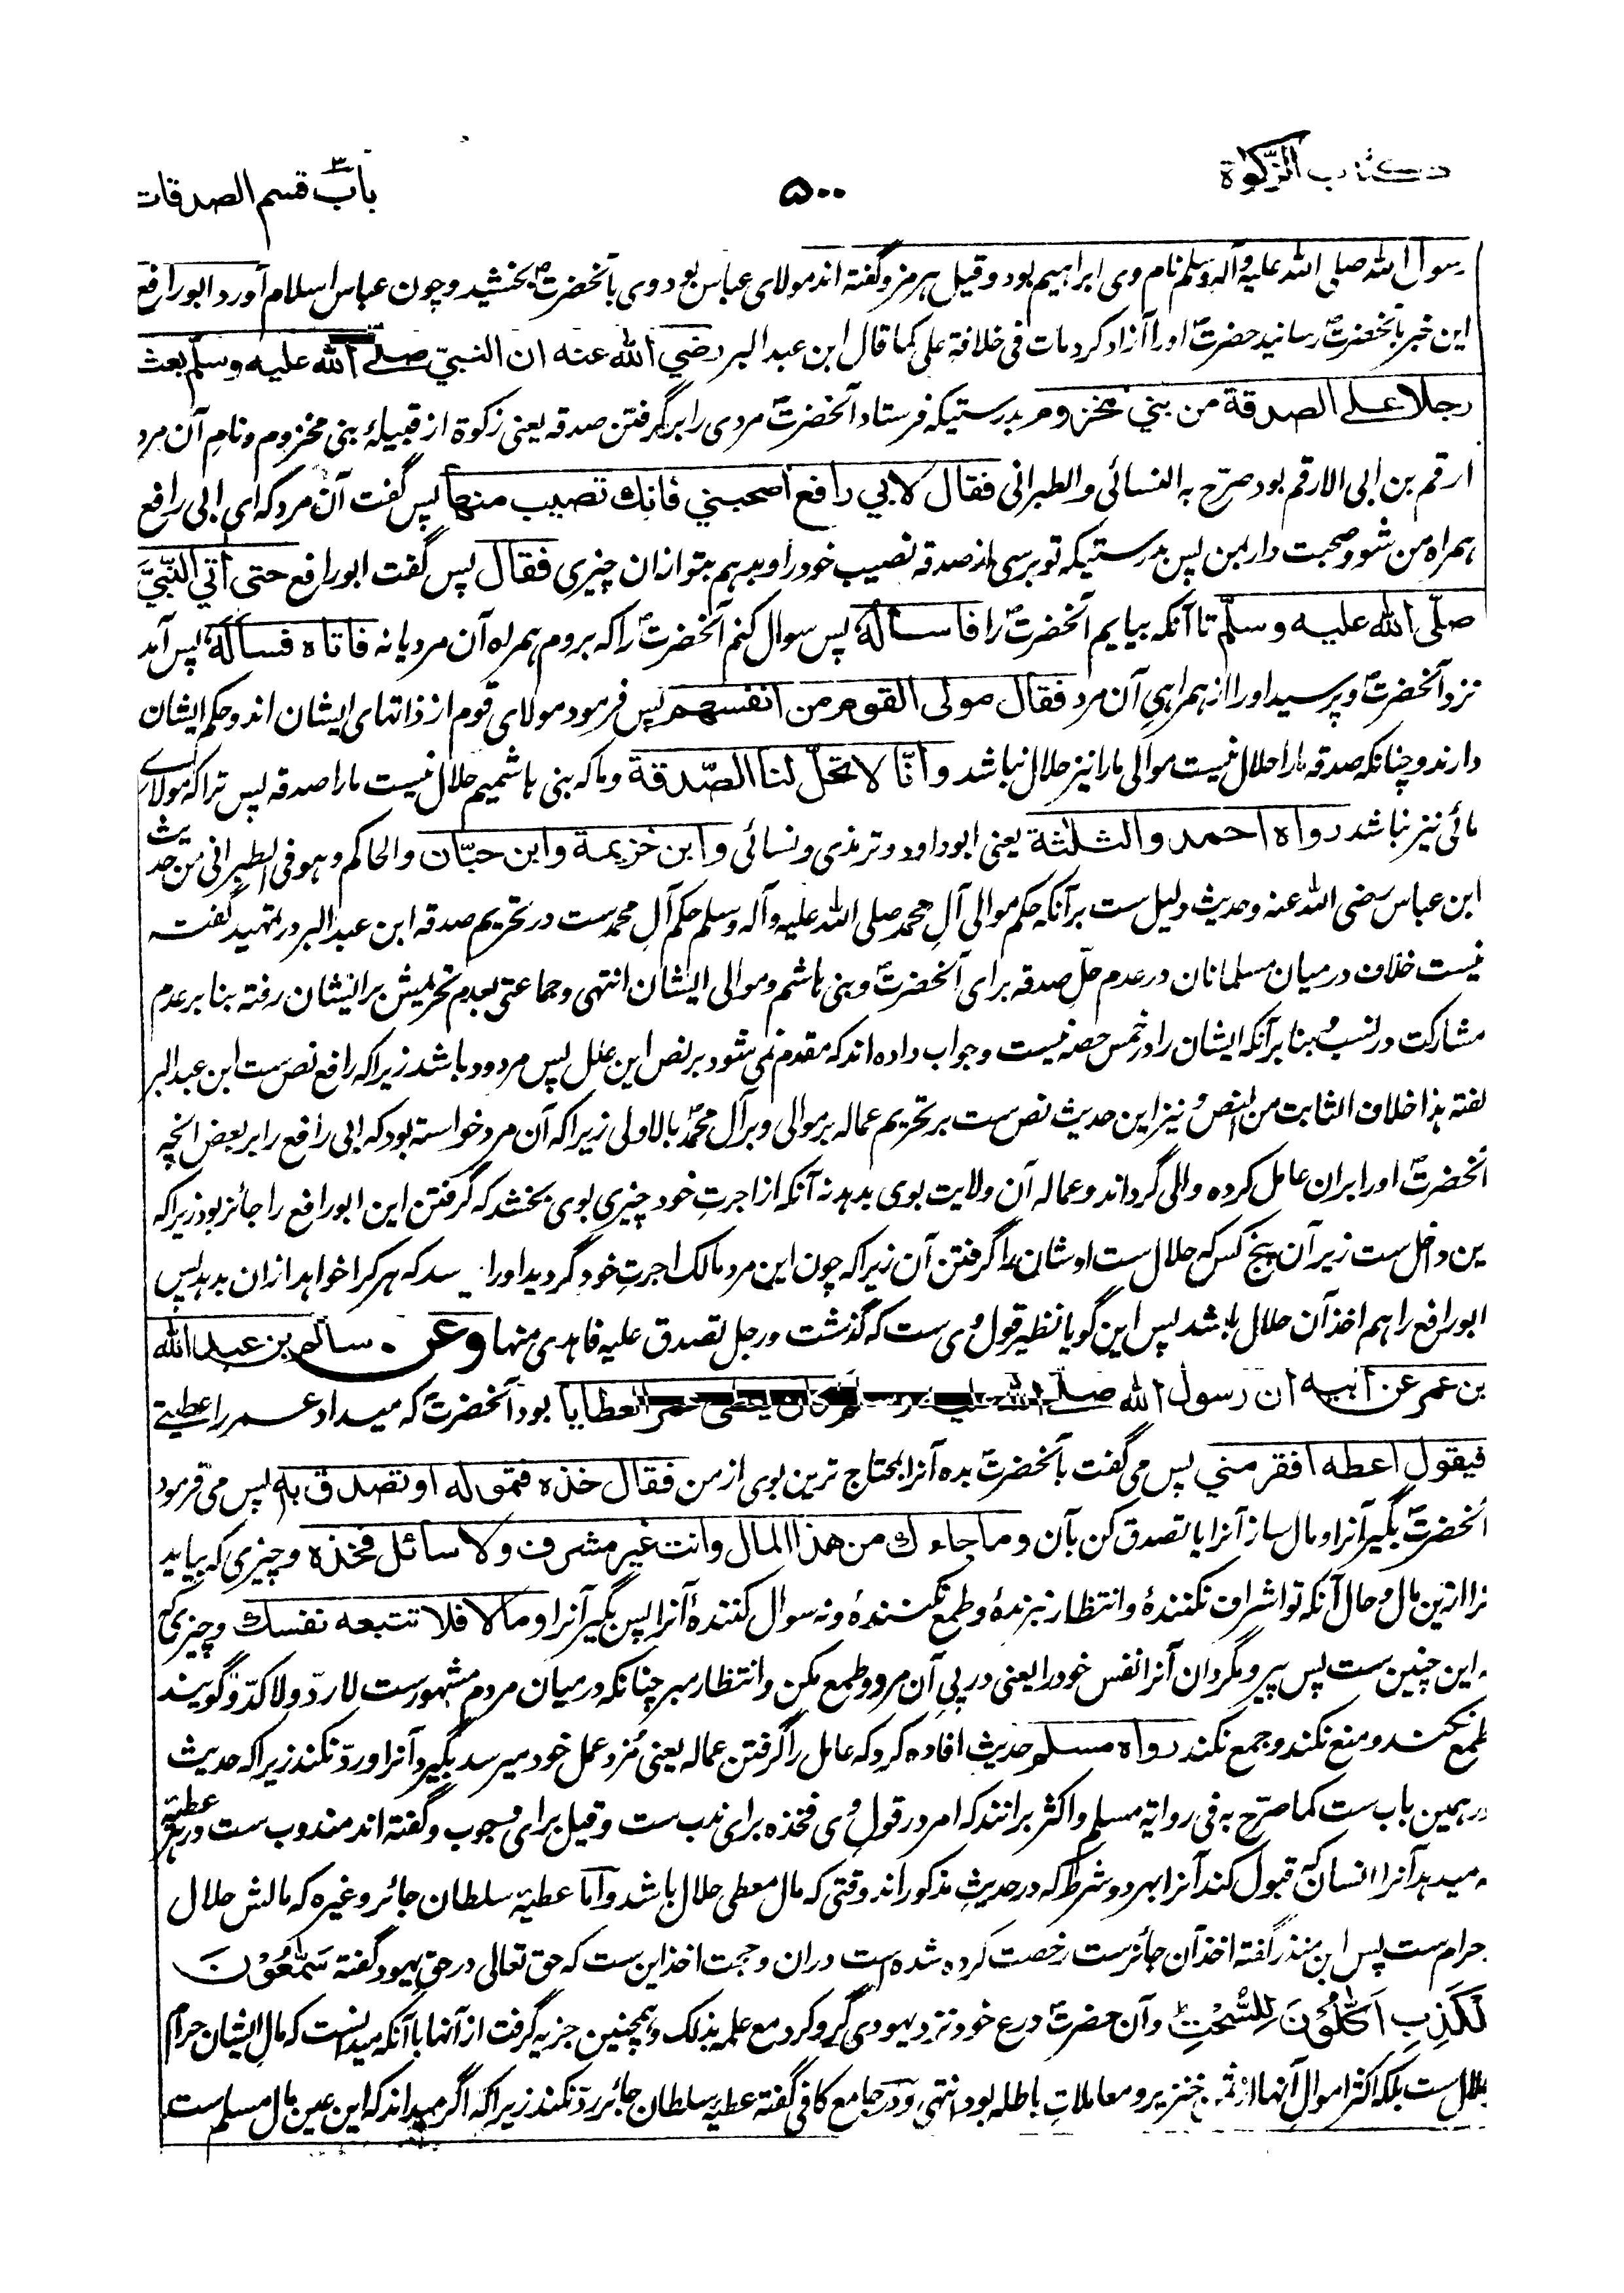 کتاب الزکوة
۵۰۰
باب قسم الصدقات
رسول الله صلی الله علیه وآله وسلم نام وی ابراهیم بود وقیل هرمز وگفته اند مولای عباس بود وی بآنحضرتؐ بخشید وچون عباس اسلام آورد ابورافع
این خبر بآنحضرتؐ رسانید حضرتؐ او را آزاد کرد مات فی خلافة علی کما قال ابن عبد البر رضي الله عنه ان النبيّ صلے الله علیه وسلّم بعث
رجلا علے الصدقة من بني مخزوم بدرستیکه فرستاد آنحضرتؐ مردی را بر گرفتن صدقه یعنی زکوة از قبیلهٔ بنی مخزوم ونام آن مرد
ارقم بن ابی الارقم بود صرّح به النسائی والطبرانی فقال لابي رافع اصحبني فانك تصيب منها پس گفت آن مرد که ای ابی رافع
همراه من شو وصحبت دار بمن پس بدرستیکه تو برسی از صدقه نصیب خود را وبدهم بتو ازان چیزی فقال پس گفت ابورافع حتی اٰتي النّبيّ
صلّی الله علیه وسلّم تا آنکه بیایم آنحضرتؐ را فاساله پس سوال کنم آنحضرتؐ را که بروم همراه آن مرد یا نه فاتاه فساله پس آمد
نزد آنحضرتؐ وپرسید او را از همراهی آن مرد فقال مولی القوم من انفسهم پس فرمود مولای قوم از ذاتهای ایشان اند وحکم ایشان
دارند وچنانکه صدقه مارا حلال نیست موالی ما را نیز حلال نباشد وانّا لا تحلّ لنا الصّدقة وما که بنی هاشمیم حلال نیست ما را صدقه پس ترا که مولای
مائی نیز نباشد رواه احمد والثلثة یعنی ابوداود وترمذی ونسائی وابن خزیمة وابن حبّان والحاکم وهو فی الطبرانی من حدیث
ابن عباس رضی الله عنه وحدیث دلیل ست برآنکه حکم موالی آلِ محمد صلی الله علیه وآله وسلم حکم آلِ محمد ست در تحریم صدقه ابن عبد البر در تمهید گفته
نیست خلاف درمیان مسلمانان در عدم حلّ صدقه برای آنحضرتؐ وبنی هاشم وموالی ایشان انتهی وجماعتی بعدم تحریمش بر ایشان رفته بنا بر عدم
مشارکت در نسب وبنا برآنکه ایشان را در خمس حصه نیست وجواب داده اند که مقدم نمی شود بر نص این علل پس مردود باشد زیراکه رافع نص ست ابن عبد البر
گفته هذا خلاف الثابت من النص ونیز این حدیث نص ست بر تحریم عماله بر موالی وبر آل محمدؐ بالاولی زیراکه آن مرد خواسته بود که ابی رافع را بر بعض آنچه
آنحضرتؐ او را بران عامل کرده والی گرداند وعماله آن ولایت بوی بدهد نه آنکه از اجرتِ خود چیزی بوی بخشد که گرفتن این ابورافع را جائز بود زیراکه
ین داخل ست زیر آن پنج کس که حلال ست اوشان را گرفتن آن زیراکه چون این مرد مالک اجرتِ خود گردید او را سد که هرکرا خواهد ازان بدهد پس
ابورافع را هم اخذ آن حلال باشد پس این گویا نظیر قول وی ست که گذشت ورجل تصدق علیه فاهدی منها وعن سالم بن عبد الله
بن عمر عن ابیه ان رسول الله صلے الله علیه وسلم کان یعطی عمر العطایا بود آنحضرتؐ که میداد عمر را عطیتے
فیقول اعطه افقر مني پس می گفت بآنحضرتؐ بده آنرا بمحتاج ترین بوی از من فقال خذه فتموله او تصدق به پس می فرمود
آنحضرتؐ بگیر آنرا ومال ساز آنرا یا تصدق کن بآن وما جاءك من هذا المال وانت غیر مشرف ولا سائل فخذه وچیزی که بیاید
ترا ازین مال وحال آنکه تو اشراف نکنندهٔ وانتظار نبرندهٔ وطمع نکنندهٔ ونه سوال کنندهٔ آنرا پس بگیر آنرا وما لا فلا تتبعه نفسك وچیزی که
این چنین ست پس پیرو مگردان آنرا نفس خود را یعنی در پی آن مرو وطمع مکن وانتظار مبر چنانکه درمیان مردم مشهور ست لا ردّ ولا کدّ وگویند
طمع نکند ومنع نکند وجمع نکند رواه مسلم حدیث افاده کرد که عامل را گرفتن عماله یعنی مُزد عمل خود میرسد بگیرد آنرا ورد نکند زیراکه حدیث
در همین باب ست کما صرّح به فی روایة مسلم واکثر برانند که امر در قول وی فخذه برای ندب ست وقیل برای وجوب وگفته اند مندوب ست در هر عطیّه
که میدهد آنرا انسان که قبول کند آنرا بهر دو شرط که در حدیثِ مذکور اند وقتی که مال معطی حلال باشد واما عطیّه سلطان جائر وغیره که مالش حلال
حرام ست پس ابن منذر گفته اخذ آن جائز ست رخصت کرده شده است دران وحجت اخذ این ست که حق تعالی در حق یهود گفته سَمّٰعُوْنَ
لِلْكَذِبِ اَكّٰلُوْنَ لِلسُّحْتِ وآن حضرتؐ درع خود نزد یهودی گرو کرد مع علمه بذلک وهمچنین جزیه گرفت از آنها با آنکه میدانست که مال ایشان حرام
حلال ست بلکه اکثر اموال آنها از ثمن خنزیر ومعاملاتِ باطله بود انتهی ودر جامع کافی گفته عطیّه سلطان جائر رد نکند زیراکه اگر میداند که این عین مال مسلم ست